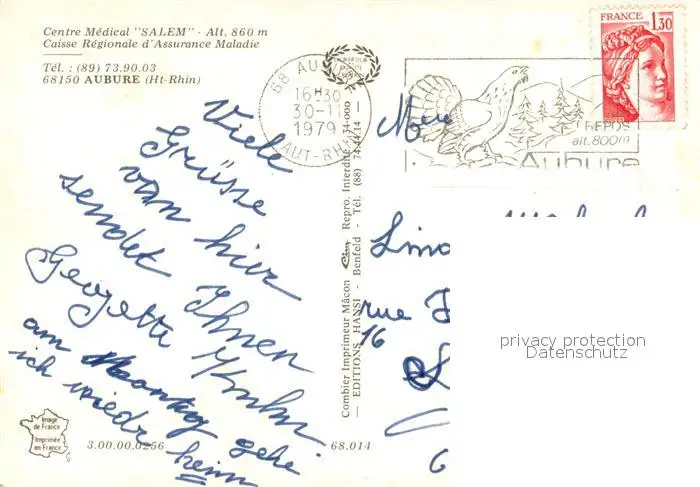 Centre Médical "SALEM" - Alt. 860 m
Caisse Régionale d'Assurance Maladie
Tél. : (89) 73.90.03
68150 AUBURE (Ht-Rhin)
Viele
Grüsse
von hier
sendet Ihnen
Georgette
am Montag gehe
ich wiedre heim
Image
de France
Imprimée
en France
3.00.00.0256
68.014
Combier Imprimeur Mâcon Cim Repro. Interdite
— EDITIONS HANSI - Benfeld - Tél. (88) 74.44.14 —
68 AUBURE
16H30
30-11
1979
HAUT-RHIN
REPOS
alt. 800m
Aubure
FRANCE
1,30
rue
16
privacy protection
Datenschutz